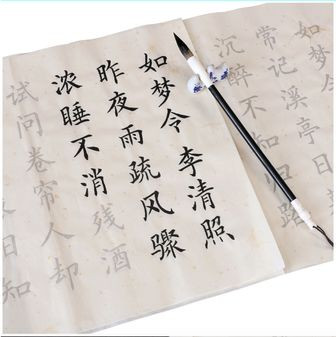 如梦
常记溪亭日
沉醉不归路
如梦令 李清照
昨夜雨疏风骤
浓睡不消残酒
试问卷帘人却
知